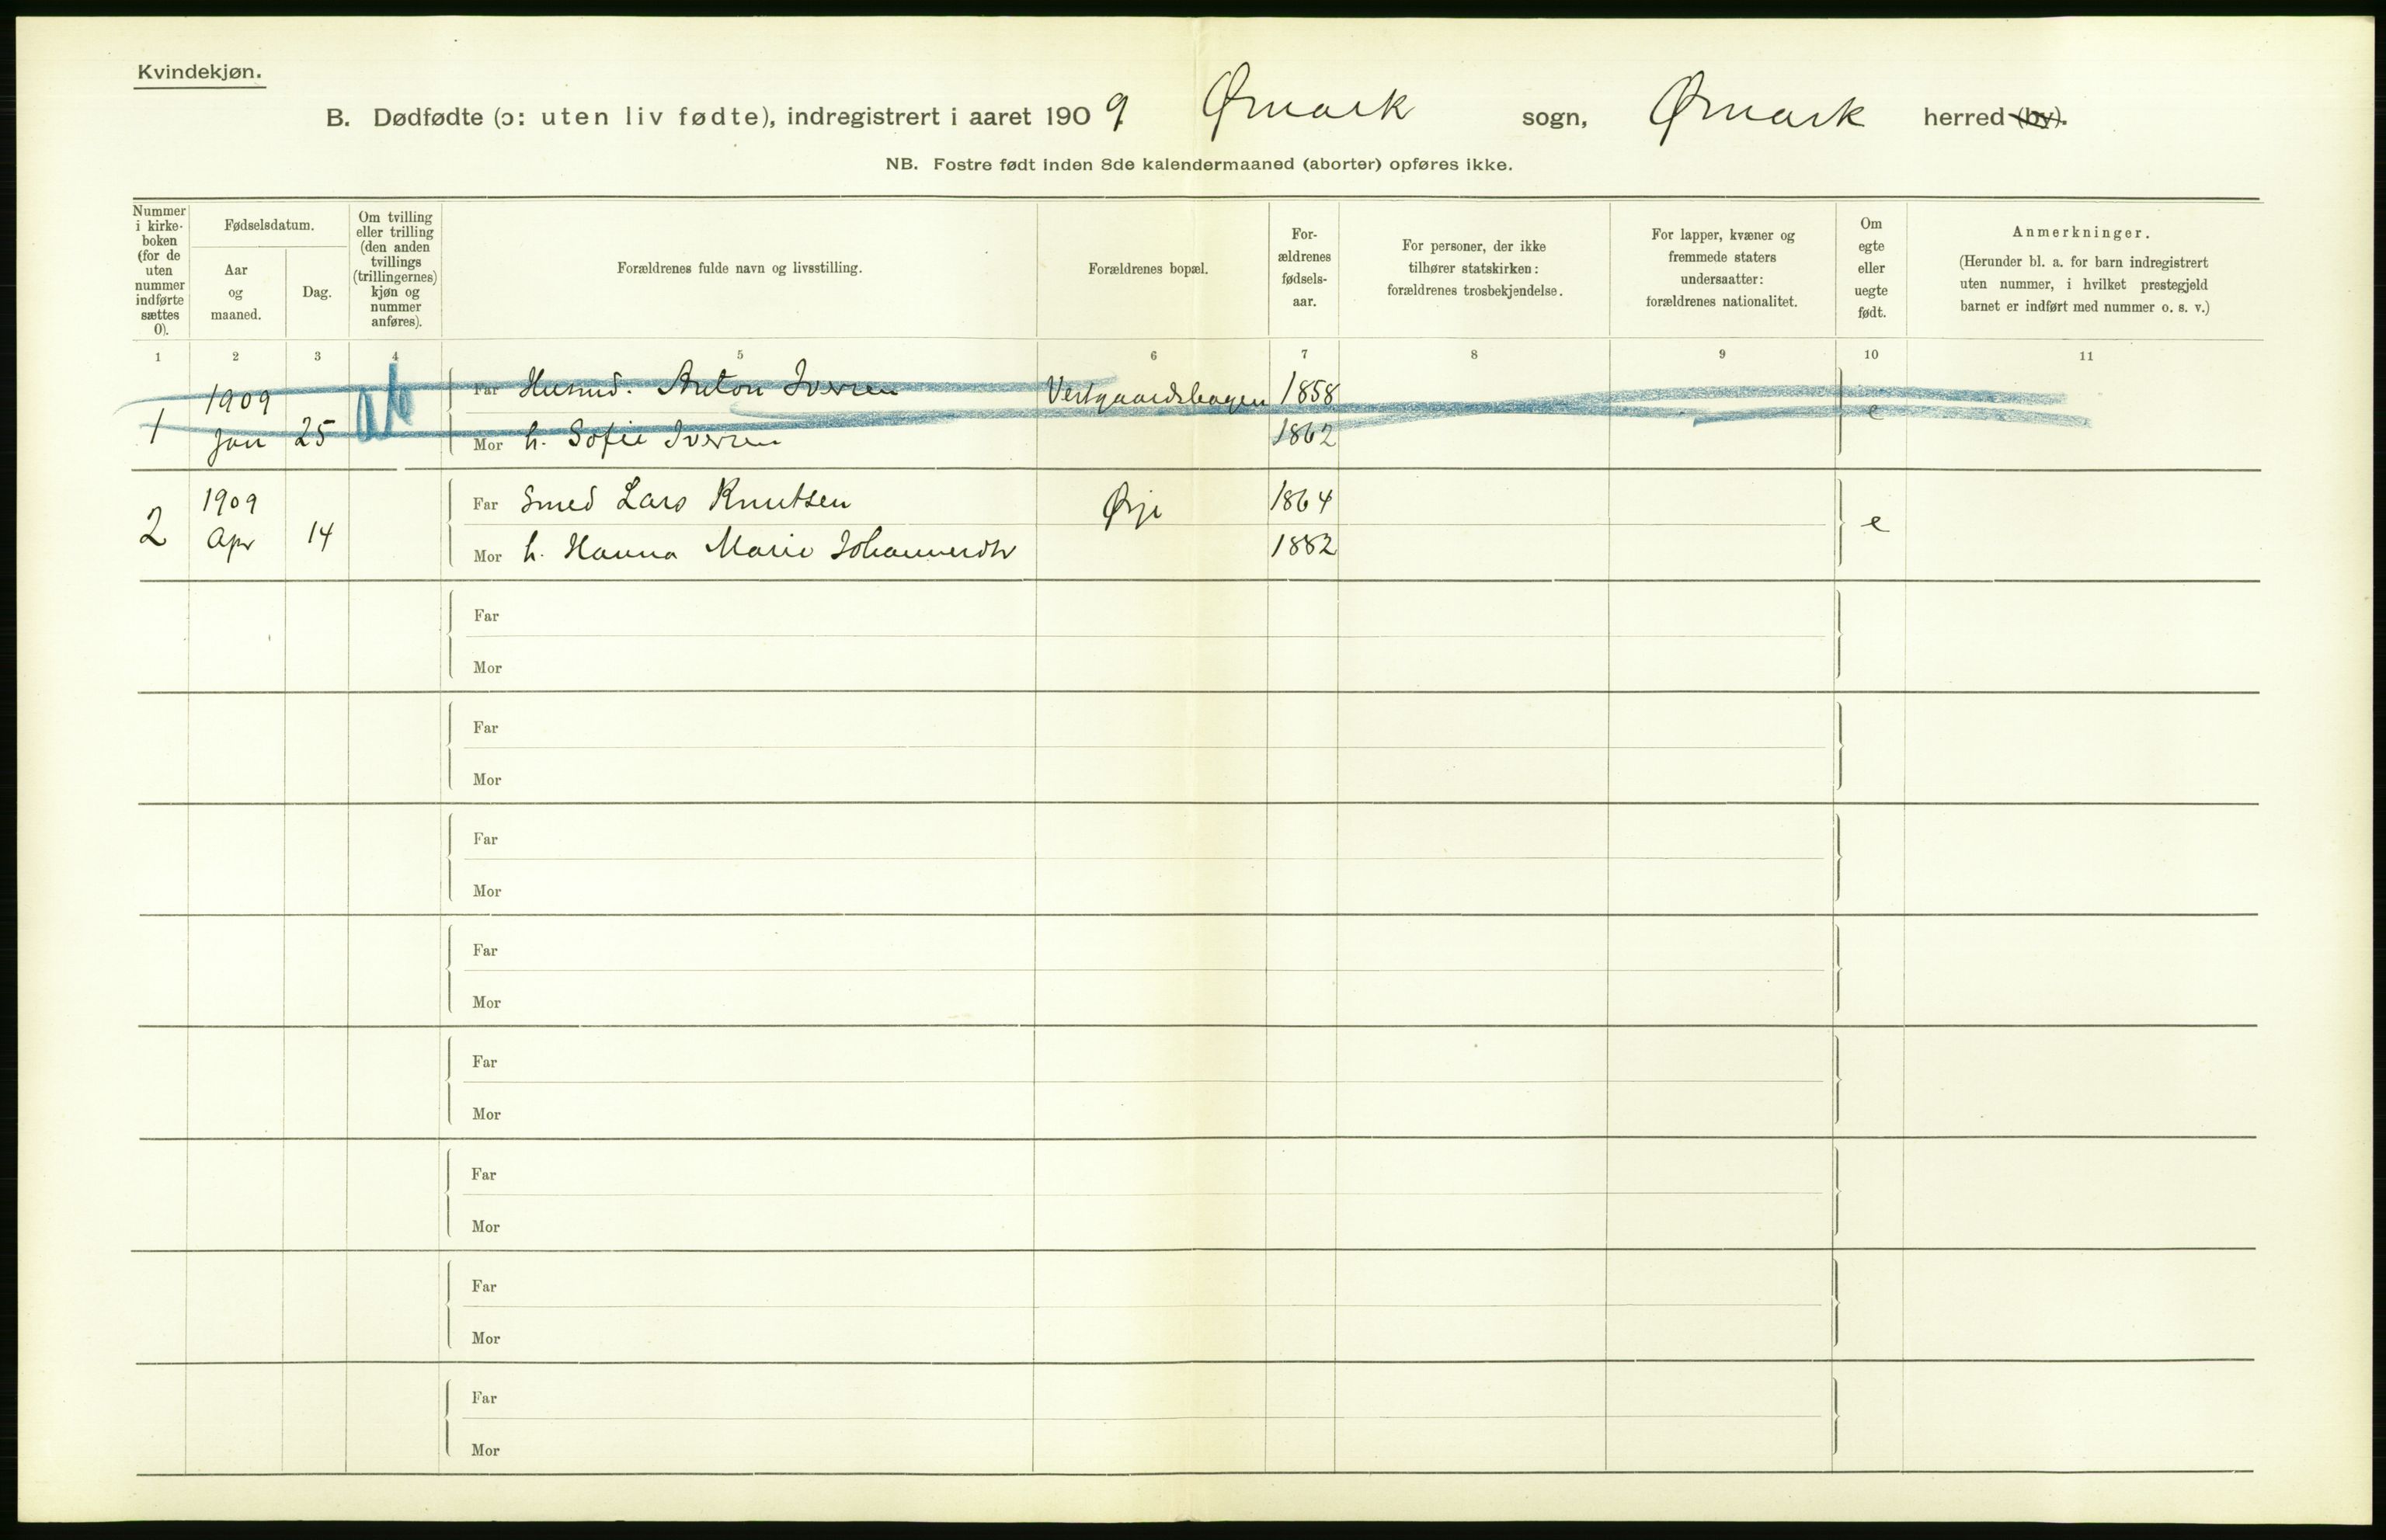 Kvindekjøn.
B. Dødfødte (ɔ: uten liv fødte), indregistrert i aaret 1909. Ømark sogn, Ømark herred (by).
NB. Fostre født inden 8de kalendermaaned (aborter) opføres ikke.
Nummer i kirke-boken (for de uten nummer indførte sættes 0).
Fødselsdatum.
Aar og maaned.
Dag.
Om tvilling eller trilling (den anden tvillings (trillingernes) kjøn og nummer anføres).
Forældrenes fulde navn og livsstilling.
Forældrenes bopæl.
For-ældrenes fødsels-aar.
For personer, der ikke tilhører statskirken: forældrenes trosbekjendelse.
For lapper, kvæner og fremmede staters undersaatter: forældrenes nationalitet.
Om egte eller uegte født.
Anmerkninger.
(Herunder bl. a. for barn indregistrert uten nummer, i hvilket prestegjeld barnet er indført med nummer o. s. v.)
1 2 3 4 5 6 7 8 9 10 11
1909 Far Husmd. Anton Iversen Vestgaardshagen 1858
1 Jan 25 ab Mor h. Sofie Iversen 1862 e
1909 Far Smed Lars Knutsen Ørje 1864
2 Apr 14 Mor h. Hanna Marie Johannesdtr 1882 e
Far
Mor
Far
Mor
Far
Mor
Far
Mor
Far
Mor
Far
Mor
Far
Mor
Far
Mor